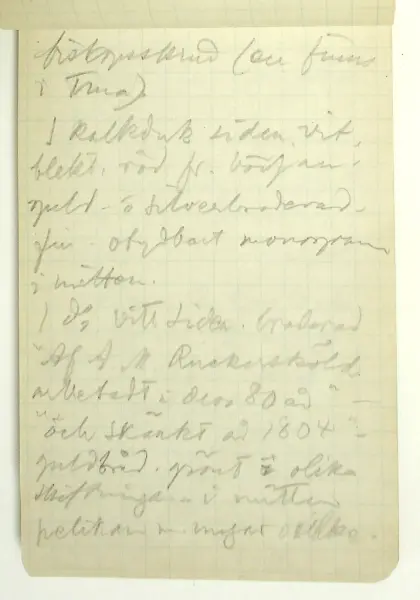 biskopsskrud (en finns
i Trosa).
1 kalkduk siden, vit,
blekt, röd fr. början,
guld- o silverbroderad.
fin. otydbart monogram
i mitten.
1 do vitt siden. broderad
"Af A M Ruckersköld
arbetadt i dess 80 år" –
"och skänkt år 1804" –
guldbrod. grönt i olika
skiftningar i mitten
pelikan m. ungar silke.